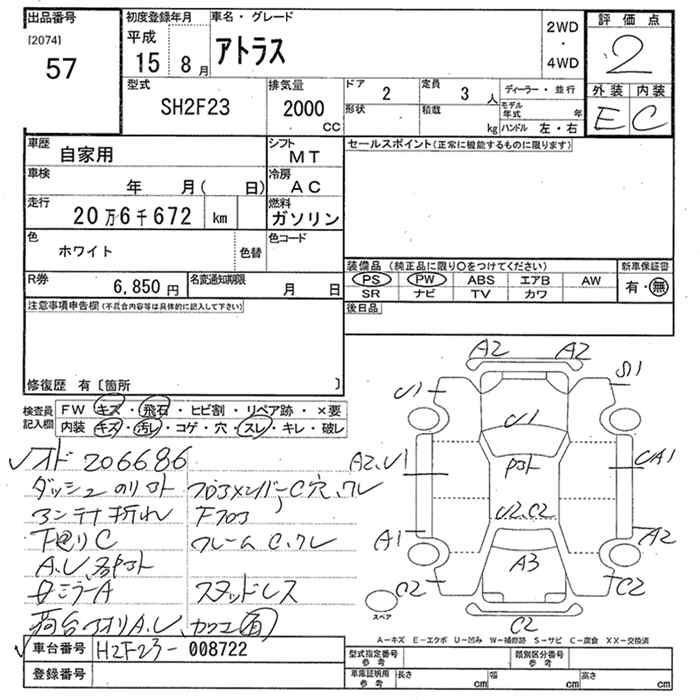 出品番号
[2074]
57
初度登録年月
平成
15 8月
車名・グレード
アトラス
2WD
・
4WD
評価点
2
外装 内装
E C
型式
SH2F23
排気量
2000
CC
ドア
2
定員
3 人
形状
積載
kg
ディーラー・並行
モデル年式 年
ハンドル 左・右
車歴
自家用
シフト
MT
車検
年 月( 日)
冷房
AC
走行
20万6千672 km
燃料
ガソリン
色
ホワイト
色替
色コード
R券
6,850円
名変通知期限
月 日
セールスポイント(正常に機能するものに限ります)
装備品 (純正品に限り○をつけてください)
PS PW ABS エアB AW
SR ナビ TV カワ
新車保証書
有・無
後日品
注意事項申告欄(不具合内容等は具体的に記入して下さい)
修復歴 有〔箇所 〕
検査員記入欄
FW キズ・飛石・ヒビ割・リペア跡・×要
内装 キズ・汚レ・コゲ・穴・スレ・キレ・破レ
オド 206686
ダッシュのリ フロアメンバーC穴
アンテナ折れ Fフロア
下廻りC フレームC
A.U
ミラーA スタッドレス
荷台アオリA.U
車台番号 H2F23-008722
登録番号
A2 A2
U1 S1
U1
A2.U1 UA1
U2.C2
A1 A2
A3
C2 C2
C2
スペア
A-キズ E-エクボ U-凹み W-補修跡 S-サビ C-腐食 XX-交換済
型式指定番号 参考
類別区分番号 参考
車庫証明用 参考 長さ cm 幅 cm 高さ cm